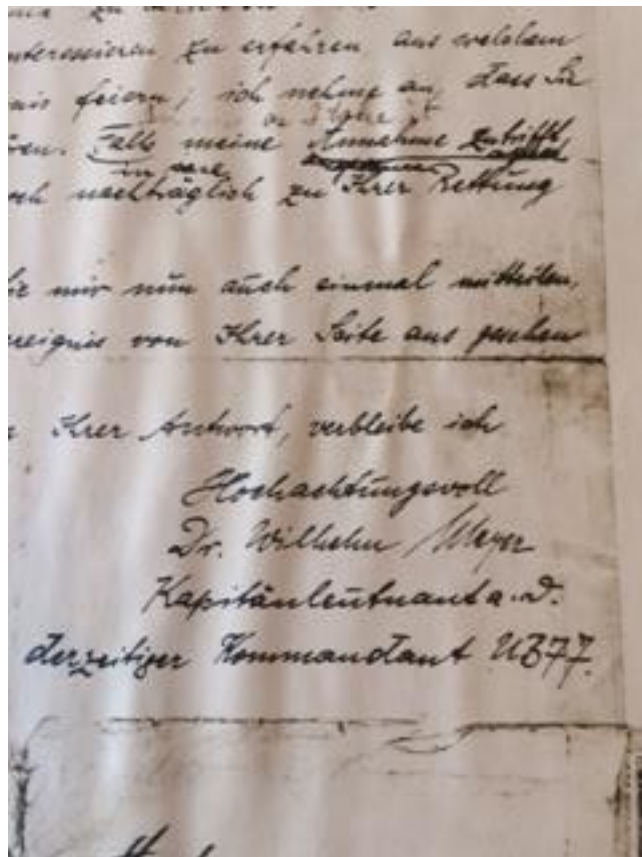 zu
interessieren zu erfahren aus welchem
nis feiern; ich nehme an, dass Sie
ren. Falls meine Annahme zutrifft
in
och nachträglich zu Ihrer Rettung
Sie mir nun auch einmal mitteilen,
ereignis von Ihrer Seite aus gesehen
Ihrer Antwort, verbleibe ich
Hochachtungsvoll
Dr. Wilhelm Meyer
Kapitänleutnant a.D.
derzeitiger Kommandant UB77.